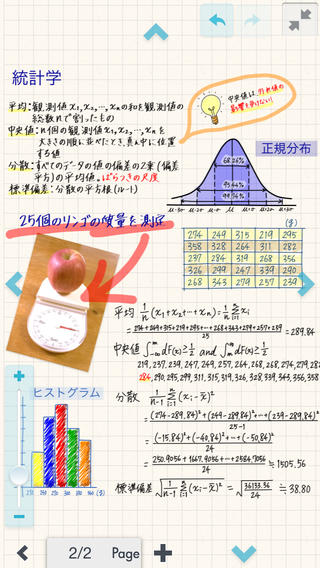 統計学
平均：観測値x₁,x₂,…,xₙの和を観測値の
総数nで割ったもの
中央値：n個の観測値x₁,x₂,…,xₙを
大きさの順に並べたとき、真ん中に位置
する値
分散：すべてのデータの値の偏差の2乗(偏差
平方)の平均値。ばらつきの尺度
標準偏差：分散の平方根(ルート)
中央値は、外れ値の
影響を受けない!
正規分布
68.26%
95.44%
99.74%
μ-3σ μ-2σ μ-σ μ μ+σ μ+2σ μ+3σ
25個のリンゴの質量を測定
274 249 315 219 295
358 328 264 311 282
237 284 319 268 356
326 299 247 339 290
268 343 279 257 239
平均 1/n (x₁+x₂+…+xₙ) = 1/n Σxᵢ
= 289.84
中央値 ∫dF(x) ≧ 1/2 and ∫dF(x) ≧ 1/2
219, 237, 239, 247, 249, 257, 264, 268, 268, 274, 279, 282
284, 290, 295, 299, 311, 315, 319, 326, 328, 339, 343, 356, 358
分散 1/n-1 Σ(xᵢ-x̄)²
= (274-289.84)²+(249-289.84)²+…+(239-289.84)² / 25-1
= (-15.84)²+(-40.84)²+…+(-50.84)² / 24
= 250.9056+1667.9056+…+2584.7056 / 24 ≒ 1505.56
標準偏差 √1/n-1 Σ(xᵢ-x̄)² = √36133.36/24 ≒ 38.80
ヒストグラム
2/2 Page